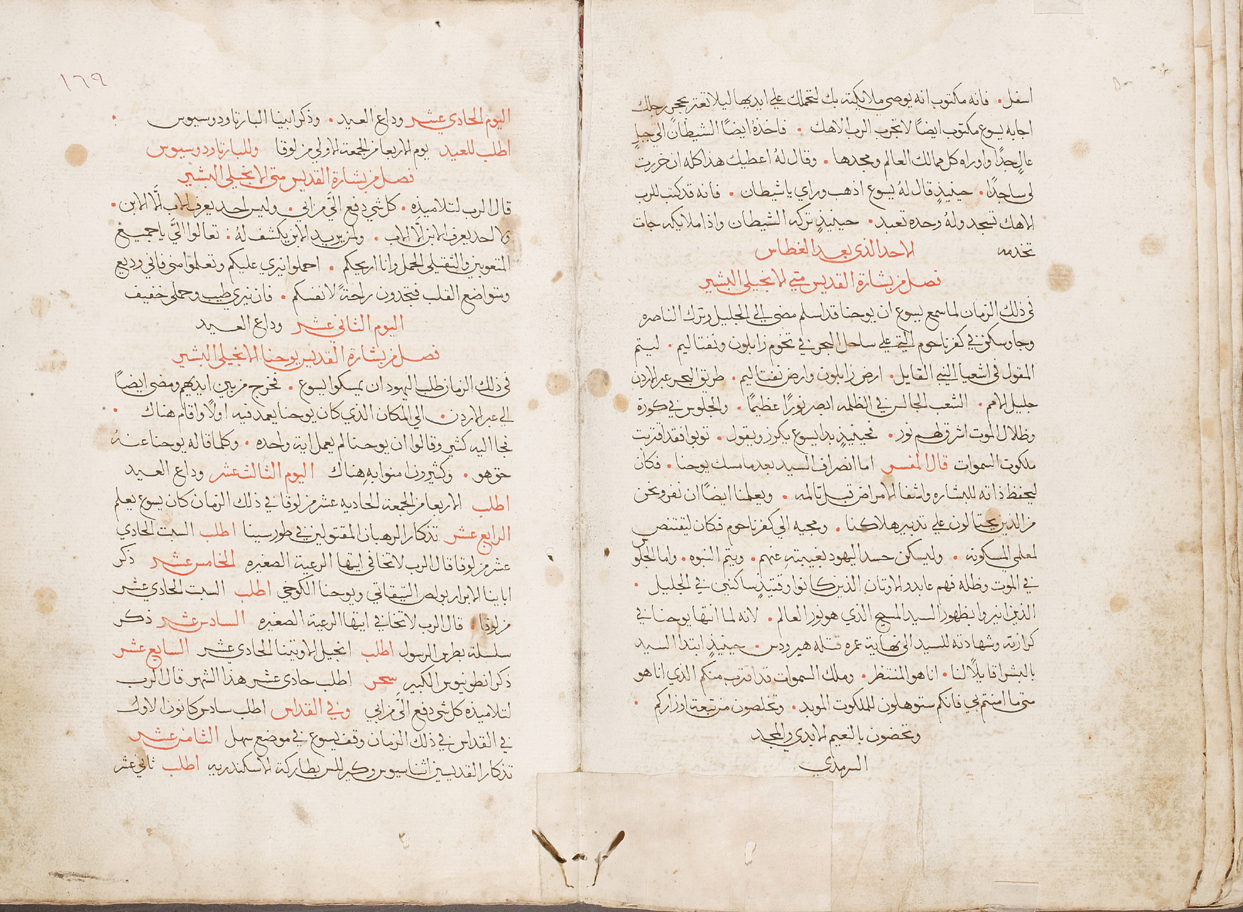 اسفل • فانه مكتوب انه يوصى ملايكته بك لتحملك على ايديها ليلا تعثر بحجر رجلك
اجابه يسوع مكتوب ايضًا لا تجرب الرب الاهك • فاخذه ايضًا الشيطان الى جبلٍ
عالٍ جدًا واوراه كل ممالك العالم ومجدها • وقال له اعطيك هذا كله ان خررت
لى ساجدًا • حينيذٍ قال له يسوع اذهب وراى يا شيطان • فانه قد كتب للرب
الاهك تسجد وله وحده تعبد • حينيذٍ تركه الشيطان واذا ملايكه جات
تخدمه
الاحد الذى بعد الغطاس
فصل من بشارة القديس متى الانجيلى البشير
فى ذلك الزمان لما سمع يسوع ان يوحنا قد اسلم مضى الى الجليل وترك الناصره
وجا وسكن فى كفرناحوم التى على ساحل البحر فى تخوم زابلون ونفتاليم • ليتم
المقول فى اشعيا النبى القايل • ارض زابلون وارض نفتاليم • طريق البحر عبر الاردن
جليل الامم • الشعب الجالس فى الظلمه ابصر نورًا عظيمًا • والجلوس فى كورة
وظلال الموت اشرق لهم نور • فحينيذٍ بدا يسوع يكرز ويقول • توبوا فقد اقتربت
ملكوت السموات قال المفسر اما انصراف السيد بعدما مسك يوحنا • فكان
ليحفظ ذاته للبشاره واشفا الامراض قبل تالمه • ويعلمنا ايضًا ان نفر ونحن
من الذين يحتالون على تدبير هلاكنا • ومجيه الى كفرناحوم فكان ليقتنص
لمعلمى المسكونه • وليسكن حسد اليهود بغيبته عنهم • ويتم النبوه • واما الجلوس
فى الموت وظله فهم عابدو الاوثان الذين كانوا وقتيذٍ ساكنى فى الجليل •
الذين انيروا بظهور السيد المسيح الذى هو نور العالم • لانه لما انتها يوحنا فى
كرازته وشهادته للسيد الى نهاية عمره قتله هيرودس • حينيذٍ ابتدا السيد
بالبشرا قايلًا لنا • انا هو المنتظر • وملك السموات قد اقترب منكم الذى انا هو
متى ما امنتم بى فانكم ستوهلون للملكوت الموبد • وتخلصون من تبعة اوزاركم •
وتحضون بالنعيم الابدى والمجد
السرمدى
١٦٩
اليوم الحادى عشر وداع العيد • وذكر ابينا البار تاودوسيوس •
اطلب للعيد يوم الاربعا من الجمعة الاولى من لوقا وللبار تاودوسيوس
فصل من بشارة القديس متى الانجيلى البشير
قال الرب لتلاميذه • كل شى دفع الىَّ من ابى • وليس احد يعرف الاب الَّا الابن •
ولا احد يعرف الابن الَّا الاب • ومن يريد الابن يكشف له • تعالوا الىَّ يا جميع
المتعوبين والثقيلى الحمل وانا اريحكم • احملوا نيرى عليكم وتعلموا منى فانى وديع
ومتواضع القلب فتجدون راحةً لانفسكم • فان نيرى طيب وحملى خفيف
اليوم الثانى عشر وداع العيد
فصل من بشارة القديس يوحنا الانجيلى البشير
فى ذلك الزمان طلب اليهود ان يمسكوا يسوع • فخرج من بين ايديهم ومضى ايضًا
الى عبر الاردن • الى المكان الذى كان يوحنا يعمد فيه اولًا واقام هناك •
فجا اليه كثير وقالوا ان يوحنا لم يعمل اية واحده • وكلما قاله يوحنا عنه
حق هو • وكثيرون امنوا به هناك اليوم الثالث عشر وداع العيد
اطلب الاربعا من الجمعة الحاديه عشر من لوقا فى ذلك الزمان كان يسوع يعلم
الرابع عشر تذكار الرهبان المقتولين فى طور سينا اطلب السبت الحادى
عشر من لوقا قال الرب لا تخافى ايتها الرعية الصغيره الخامس عشر ذكر
ابابينا الابرار بولص التيفاتى ويوحنا الكوخى اطلب السبت الحادى عشر
من لوقا • قال الرب لا تخافى ايتها الرعية الصغيره السادس عشر ذكر
سلسلة بطرس الرسول اطلب انجيل الاوثينا الحادى عشر السابع عشر
ذكر انطونيوس الكبير سحر اطلب حادى عشر هذا الشهر قال الرب
لتلاميذه كل شى دفع الىَّ من ابى وفى القداس اطلب سادس كانون الاول
فى القداس فى ذلك الزمان وقف يسوع فى موضع سهل الثامن عشر
تذكار القديسين اثناسيوس وكيرللس بطاركة الاسكندريه اطلب ثانى عشر